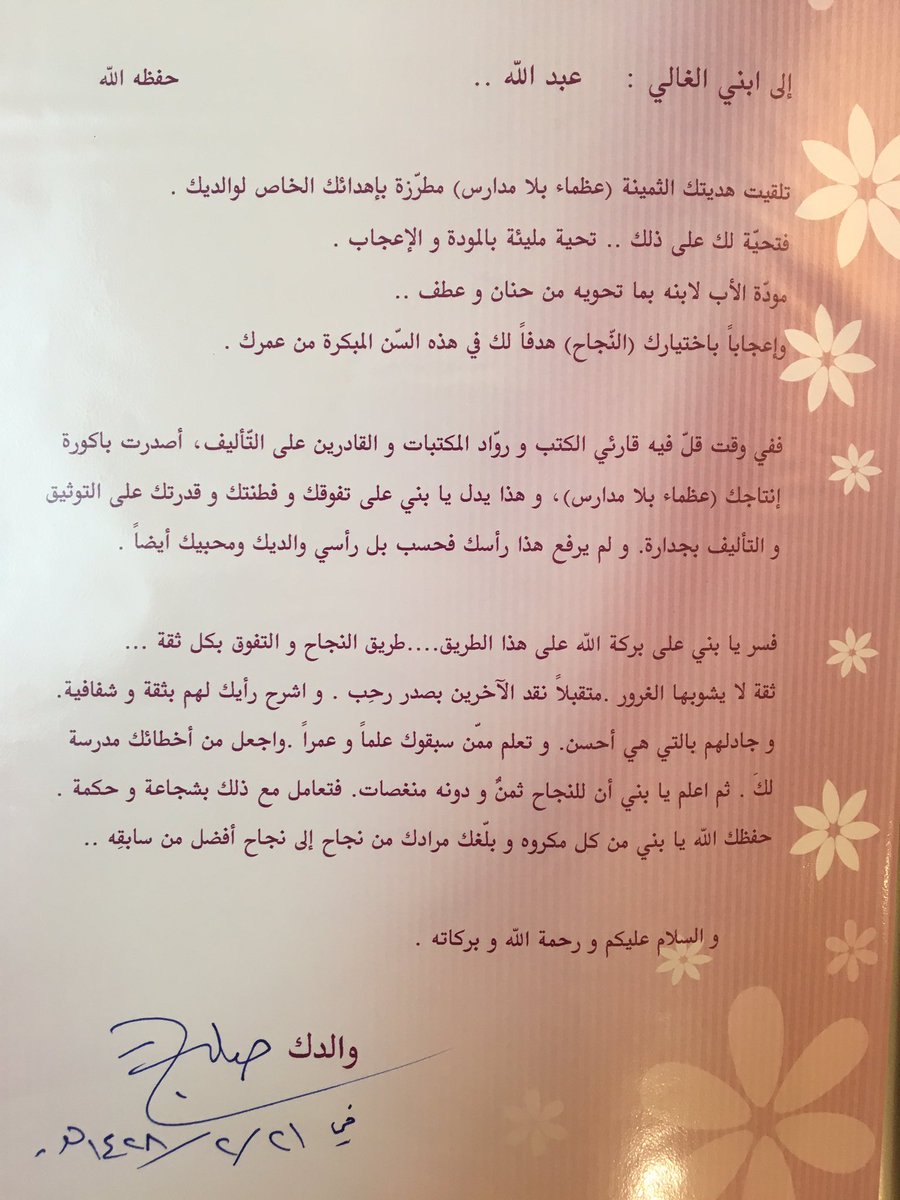 إلى ابني الغالي : عبد الله .. حفظه الله
تلقيت هديتك الثمينة (عظماء بلا مدارس) مطرّزة بإهدائك الخاص لوالديك .
فتحيّة لك على ذلك .. تحية مليئة بالمودة و الإعجاب .
مودّة الأب لابنه بما تحويه من حنان و عطف ..
وإعجاباً باختيارك (النّجاح) هدفاً لك في هذه السّن المبكرة من عمرك .
ففي وقت قلّ فيه قارئي الكتب و روّاد المكتبات و القادرين على التّأليف، أصدرت باكورة
إنتاجك (عظماء بلا مدارس)، و هذا يدل يا بني على تفوقك و فطنتك و قدرتك على التوثيق
و التأليف بجدارة. و لم يرفع هذا رأسك فحسب بل رأسي والديك ومحبيك أيضاً .
فسر يا بني على بركة الله على هذا الطريق....طريق النجاح و التفوق بكل ثقة ...
ثقة لا يشوبها الغرور .متقبلاً نقد الآخرين بصدر رحِب . و اشرح رأيك لهم بثقة و شفافية.
و جادلهم بالتي هي أحسن. و تعلم ممّن سبقوك علماً و عمراً .واجعل من أخطائك مدرسة
لكَ . ثم اعلم يا بني أن للنجاح ثمنٌ و دونه منغصات. فتعامل مع ذلك بشجاعة و حكمة .
حفظك الله يا بني من كل مكروه و بلّغك مرادك من نجاح إلى نجاح أفضل من سابقِه ..
و السلام عليكم و رحمة الله و بركاته .
والدك صالح
في ٢١/٢/١٤٢٨هـ.